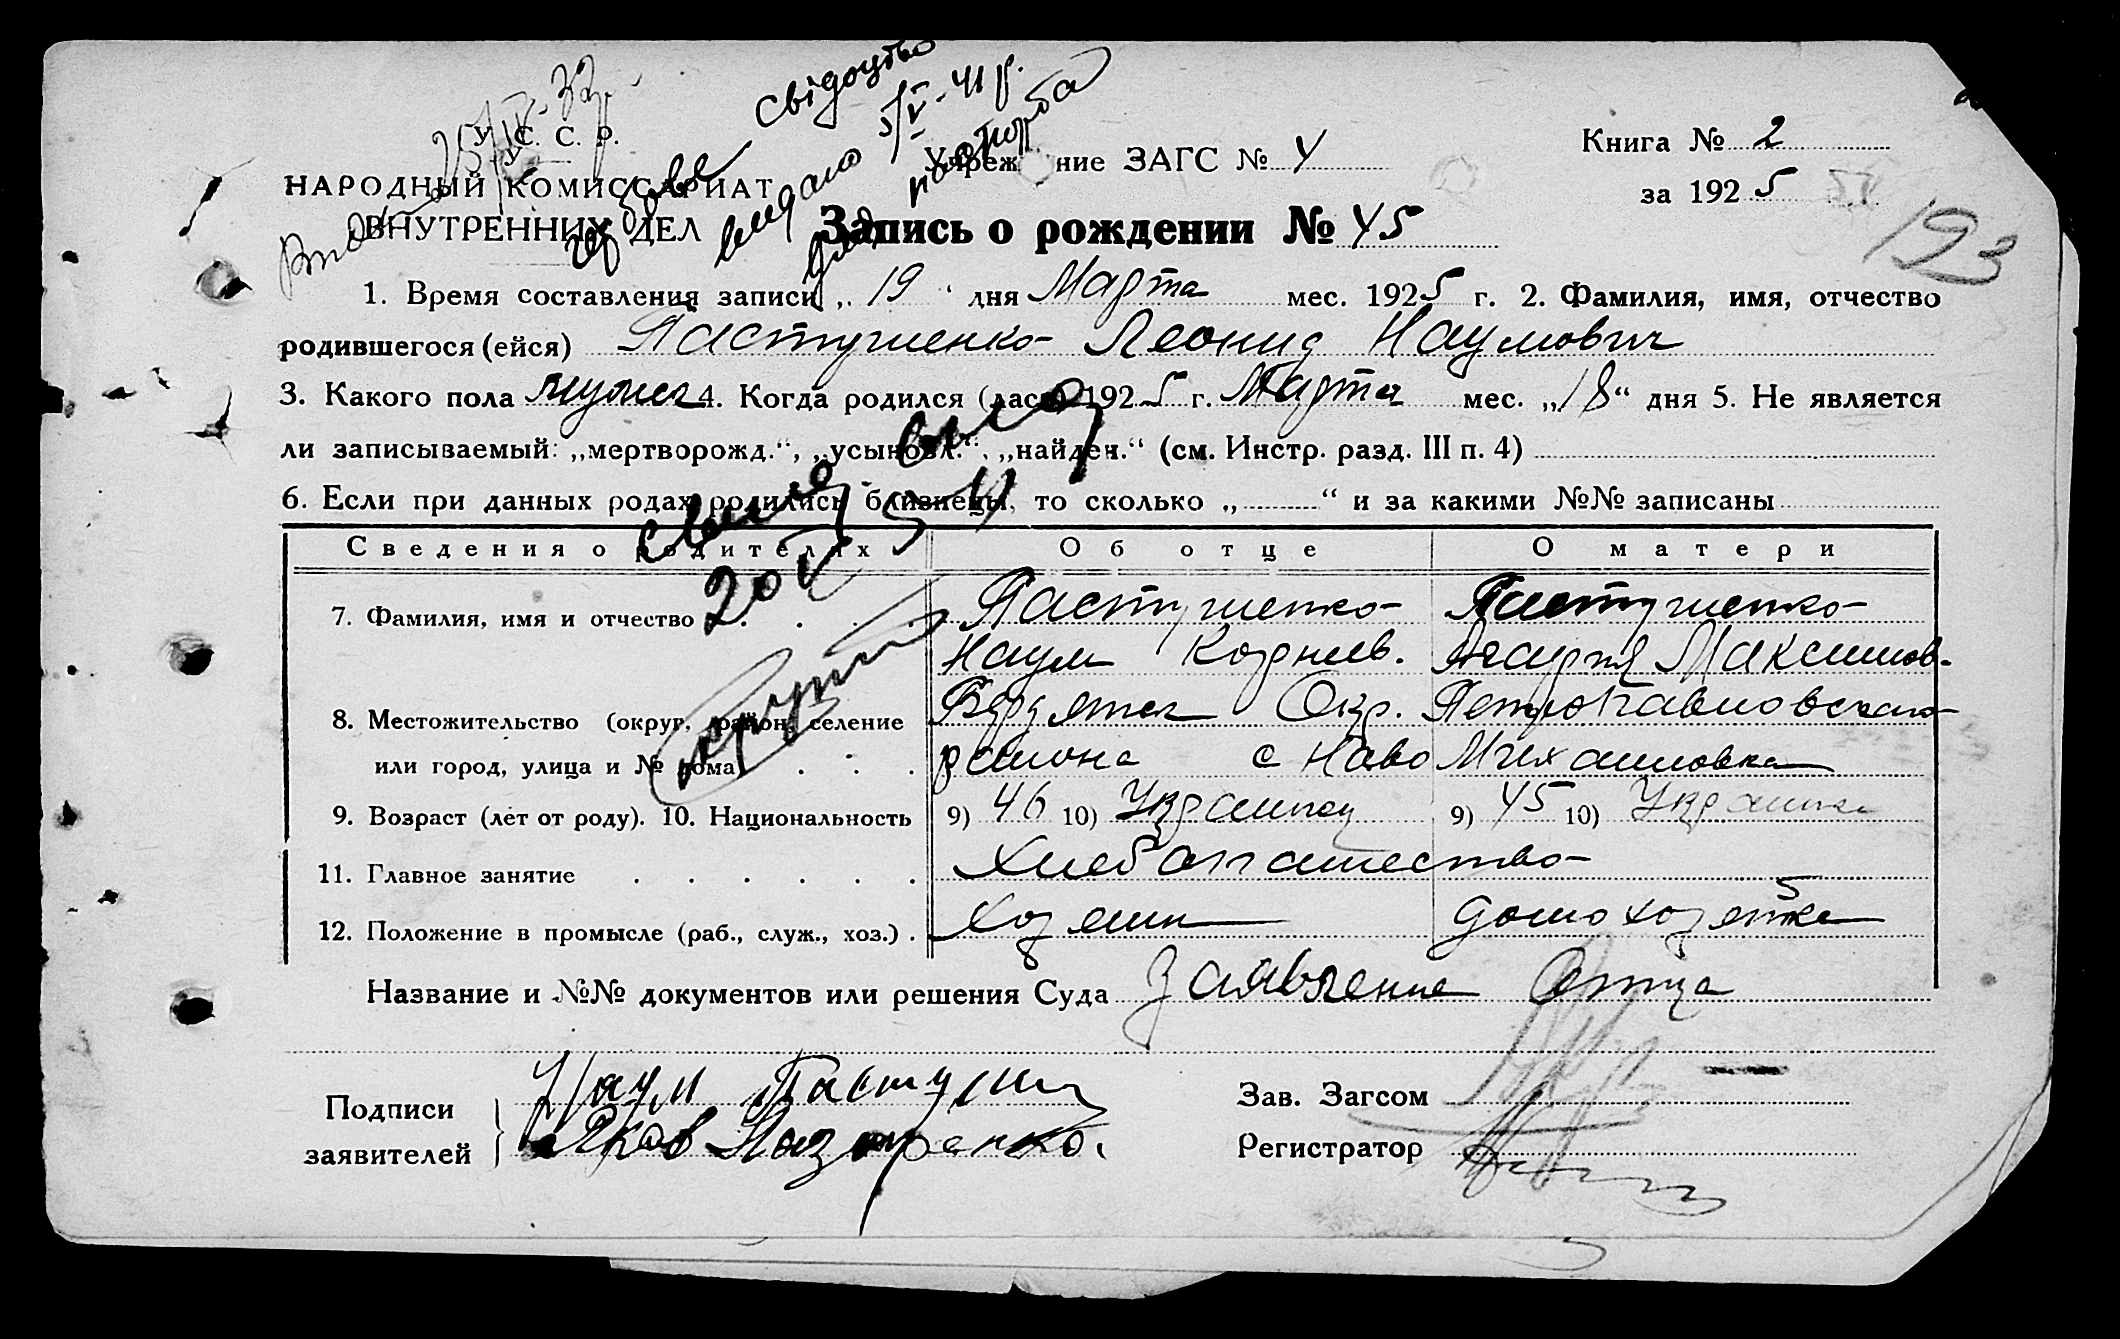 свідоцтво
видано 5/V-41 р.
для паспорта
У. С. С. Р.
НАРОДНЫЙ КОМИССАРИАТ
ВНУТРЕННИХ ДЕЛ
Учреждение ЗАГС № 4
Книга № 2
за 1925
193
Запись о рождении № 45
1. Время составления записи „19" дня Марта мес. 1925 г. 2. Фамилия, имя, отчество
родившегося (ейся) Пастушенко Леонид Наумович
3. Какого пола мужск 4. Когда родился (лась) 1925 г. Марта мес. „18“ дня 5. Не является
ли записываемый: „мертворожд.“, „усыновл.“, „найден.“ (см. Инстр. разд. III п. 4)
6. Если при данных родах родились близнецы, то сколько „ “ и за какими №№ записаны
Сведения о родителях Об отце О матери
7. Фамилия, имя и отчество Пастушенко Пастушенко
Наум Корнев. Максимов.
8. Местожительство (округ, район, селение Бердянск Окр. Петропавловского
или город, улица и № дома района с Ново Михайловка
9. Возраст (лет от роду). 10. Национальность 9) 46 10) Украинец 9) 45 10) Украинка
11. Главное занятие Хлебопашество
12. Положение в промысле (раб., служ., хоз.) Хозяин домохозяйка
Название и №№ документов или решения Суда Заявление Отца
Подписи заявителей Наум Пастушен
Яков Назаренко.
Зав. Загсом
Регистратор